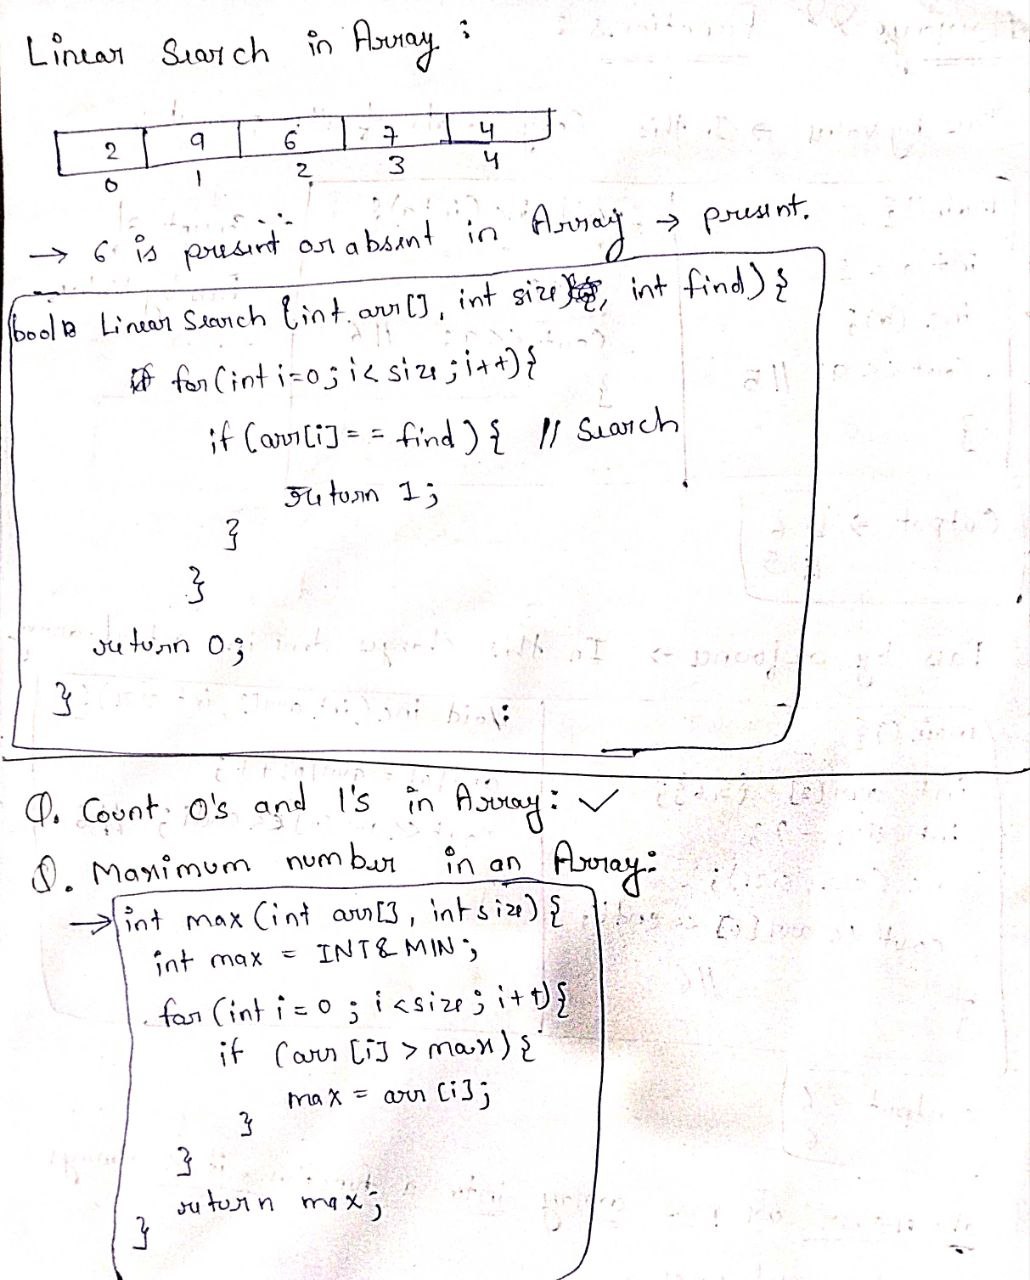 Linear Search in Array :
2 9 6 7 4
0 1 2 3 4
→ 6 is present or absent in Array → present.
bool Linear Search {int arr[], int size, int find) {
for (int i=0; i< size; i++) {
if (arr[i] == find) { // Search
return 1;
}
}
return 0;
}
Q. Count 0's and 1's in Array: ✓
Q. Maximum number in an Array:
→ int max (int arr[], int size) {
int max = INT& MIN;
for (int i = 0 ; i <size; i++) {
if (arr [i] > max) {
max = arr [i];
}
}
return max;
}